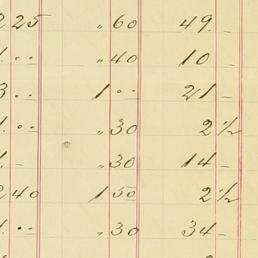 2 25 " 60 49. –
1. .. " 40 10 –
3. .. 1 .. 21 –
1. .. " 30 2 ½
1. – " 30 14 –
2 40 1 50 2 ½
1. .. " 30 34 –